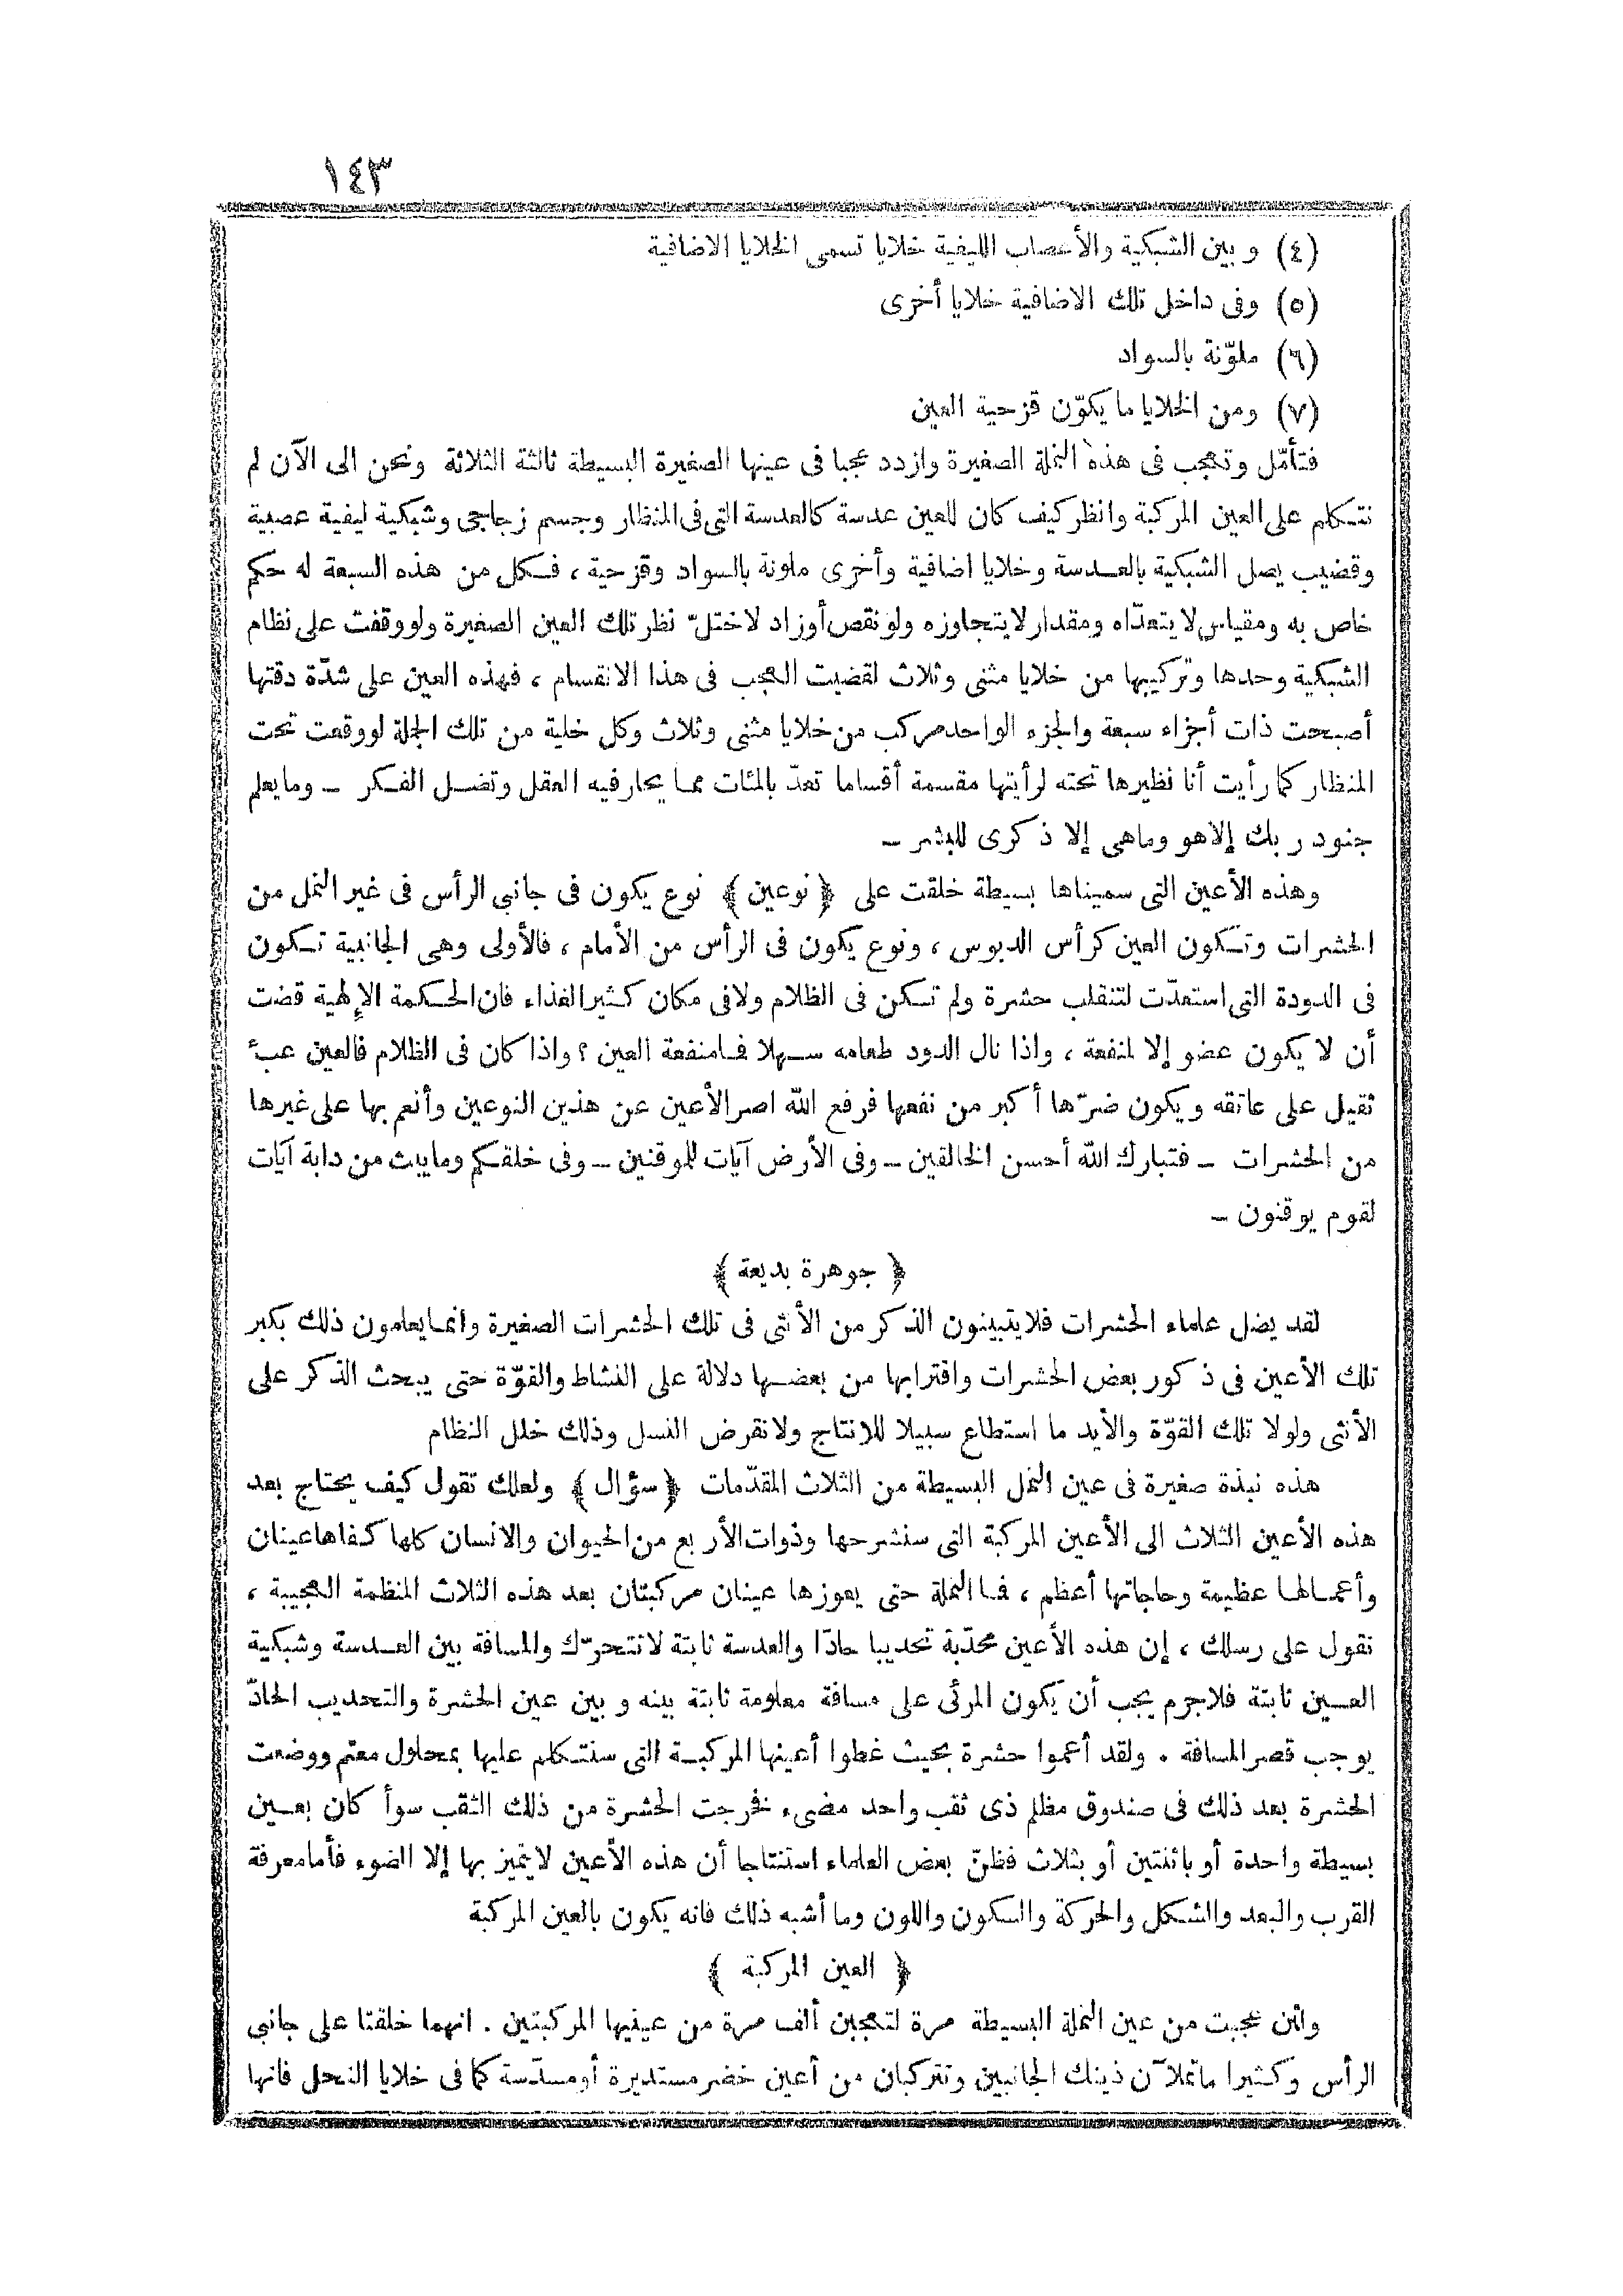 ١٤٣
(٤) وبين الشبكية والأعصاب الليفية خلايا تسمى الخلايا الاضافية
(٥) وفى داخل تلك الاضافية خلايا أخرى
(٦) ملوّنة بالسواد
(٧) ومن الخلايا ما يكوّن قزحية العين
فتأمّل وتعجب فى هذه النملة الصغيرة وازدد عجبا فى عينها الصغيرة البسيطة ثالثة الثلاثة ونحن الى الآن لم
نتكلم على العين المركبة وانظر كيف كان للعين عدسة كالعدسة التى فى المنظار وجسم زجاجى وشبكية ليفية عصبية
وقضيب يصل الشبكية بالعدسة وخلايا اضافية وأخرى ملونة بالسواد وقزحية ، فكل من هذه السبعة له حكم
خاص به ومقياس لا يتعدّاه ومقدار لا يتجاوزه ولو نقص أوزاد لاختلّ نظر تلك العين الصغيرة ولو وقفت على نظام
الشبكية وحدها وتركيبها من خلايا مثنى وثلاث لقضيت العجب فى هذا الانقسام ، فهذه العين على شدّة دقتها
أصبحت ذات أجزاء سبعة والجزء الواحد مركب من خلايا مثنى وثلاث وكل خلية من تلك الجملة لو وقعت تحت
المنظار كما رأيت أنا نظيرها تحته لرأيتها مقسمة أقساما تعدّ بالمئات مما يحار فيه العقل وتضل الفكر ـ وما يعلم
جنود ربك إلا هو وماهى إلا ذكرى للبشر ـ
وهذه الأعين التى سميناها بسيطة خلقت على ﴿ نوعين ﴾ نوع يكون فى جانبى الرأس فى غير النمل من
الحشرات وتكون العين كرأس الدبوس ، ونوع يكون فى الرأس من الأمام ، فالأولى وهى الجانبية تكون
فى الدودة التى استعدّت لتنقلب حشرة ولم تكن فى الظلام ولا فى مكان كثير الغذاء فان الحكمة الإلهية قضت
أن لا يكون عضو إلا لمنفعة ، واذا نال الدود طعامه سهلا فما منفعة العين ؟ واذا كان فى الظلام فالعين عبء
ثقيل على عاتقه ويكون ضرّها أكبر من نفعها فرفع الله اصر الأعين عن هذين النوعين وأنعم بها على غيرها
من الحشرات ـ فتبارك الله أحسن الخالقين ـ وفى الأرض آيات للموقنين ـ وفى خلقكم وما يبث من دابة آيات
لقوم يوقنون ـ
﴿ جوهرة بديعة ﴾
لقد يضل علماء الحشرات فلا يتبينون الذكر من الأنثى فى تلك الحشرات الصغيرة وانما يعلمون ذلك بكبر
تلك الأعين فى ذكور بعض الحشرات واقترابها من بعضها دلالة على النشاط والقوّة حتى يبحث الذكر على
الأنثى ولولا تلك القوّة والأيد ما استطاع سبيلا للانتاج ولانقرض النسل وذلك خلل النظام
هذه نبذة صغيرة فى عين النمل البسيطة من الثلاث المقدّمات ﴿ سؤال ﴾ ولعلك تقول كيف يحتاج بعد
هذه الأعين الثلاث الى الأعين المركبة التى سنشرحها وذوات الأربع من الحيوان والانسان كلها كفاها عينان
وأعمالها عظيمة وحاجاتها أعظم ، فما النملة حتى يعوزها عينان مركبتان بعد هذه الثلاث المنظمة العجيبة ،
نقول على رسلك ، إن هذه الأعين محدّبة تحديبا حادّا والعدسة ثابتة لا تتحرّك والمسافة بين العدسة وشبكية
العين ثابتة فلا جرم يجب أن يكون المرئى على مسافة معلومة ثابتة بينه وبين عين الحشرة والتحديب الحادّ
يوجب قصر المسافة . ولقد أعموا حشرة بحيث غطوا أعينها المركبة التى سنتكلم عليها بمحلول معتم ووضعت
الحشرة بعد ذلك فى صندوق مظلم ذى ثقب واحد مضىء فخرجت الحشرة من ذلك الثقب سوأ كان بعين
بسيطة واحدة أو بائنتين أو بثلاث فظنّ بعض العلماء استنتاجا أن هذه الأعين لا يتميز بها إلا الضوء فأما معرفة
القرب والبعد والشكل والحركة والسكون واللون وما أشبه ذلك فانه يكون بالعين المركبة
﴿ العين المركبة ﴾
ولئن عجبت من عين النملة البسيطة مرة لتعجبن ألف مرة من عينيها المركبتين . انهما خلقتا على جانبى
الرأس وكثيرا ماتملآن ذينك الجانبين وتتركبان من أعين خضر مستديرة أو مسدّسة كما فى خلايا النحل فانها